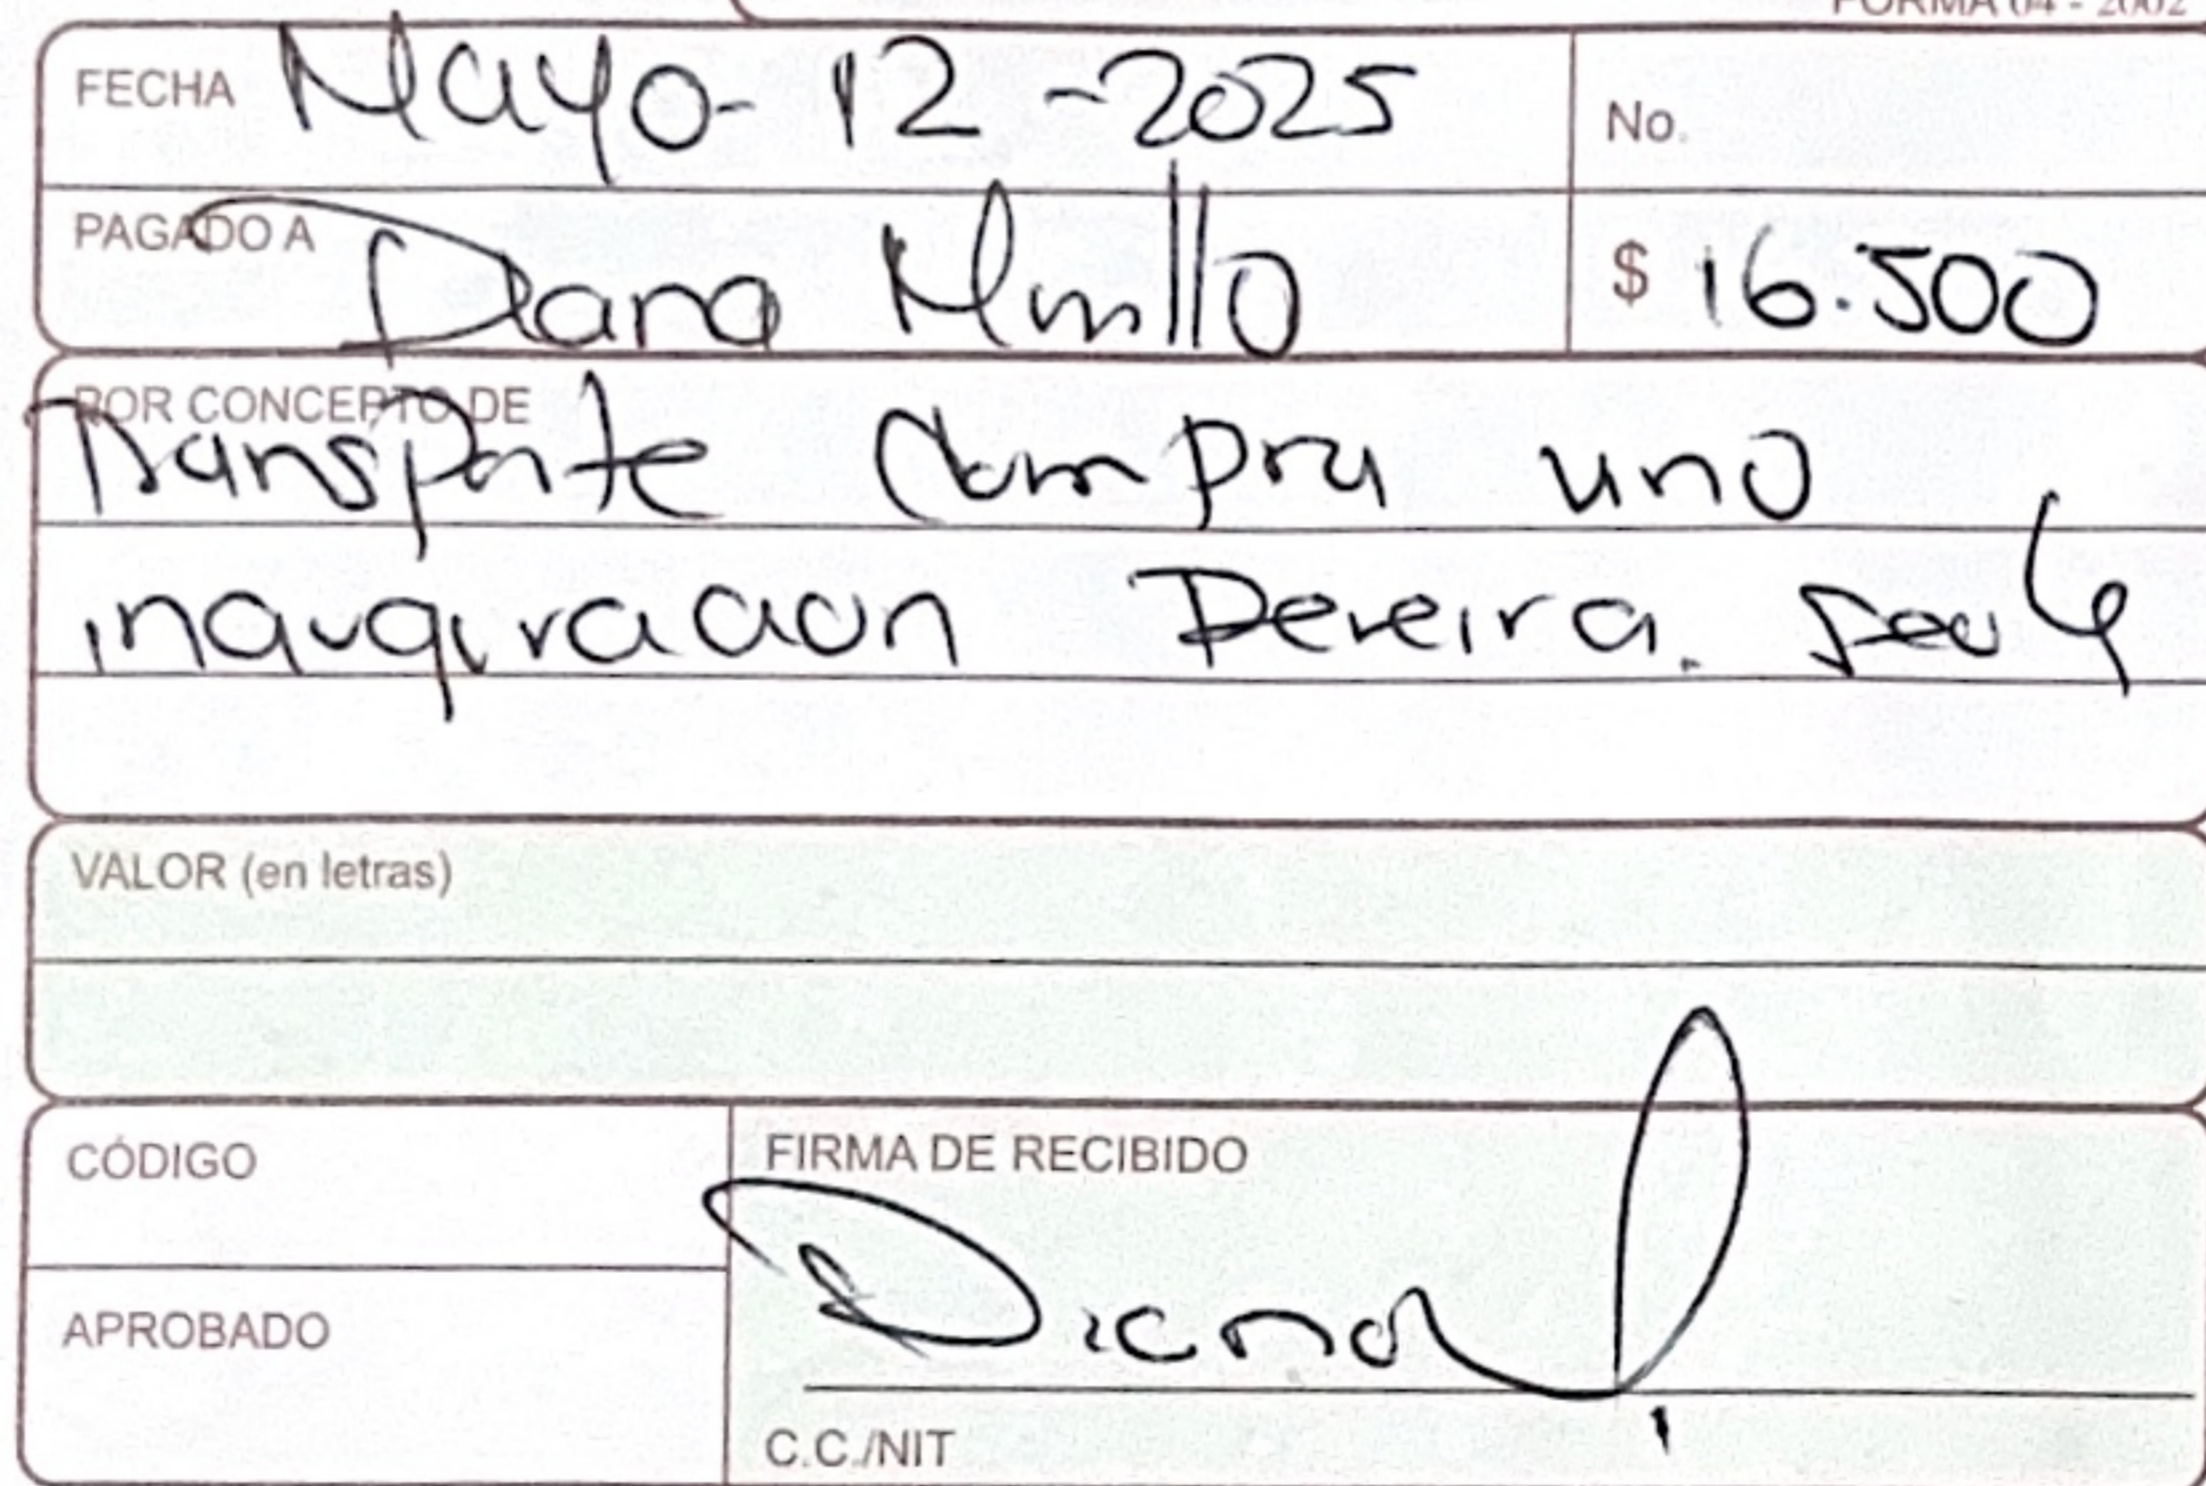 FORMA 04 - 2002
FECHA Mayo- 12 -2025
No.
PAGADO A Diana Murillo
$ 16.500
POR CONCEPTO DE
Transporte compra uno
inauguracion Pereira.
VALOR (en letras)
CÓDIGO
FIRMA DE RECIBIDO
Diana
APROBADO
C.C./NIT